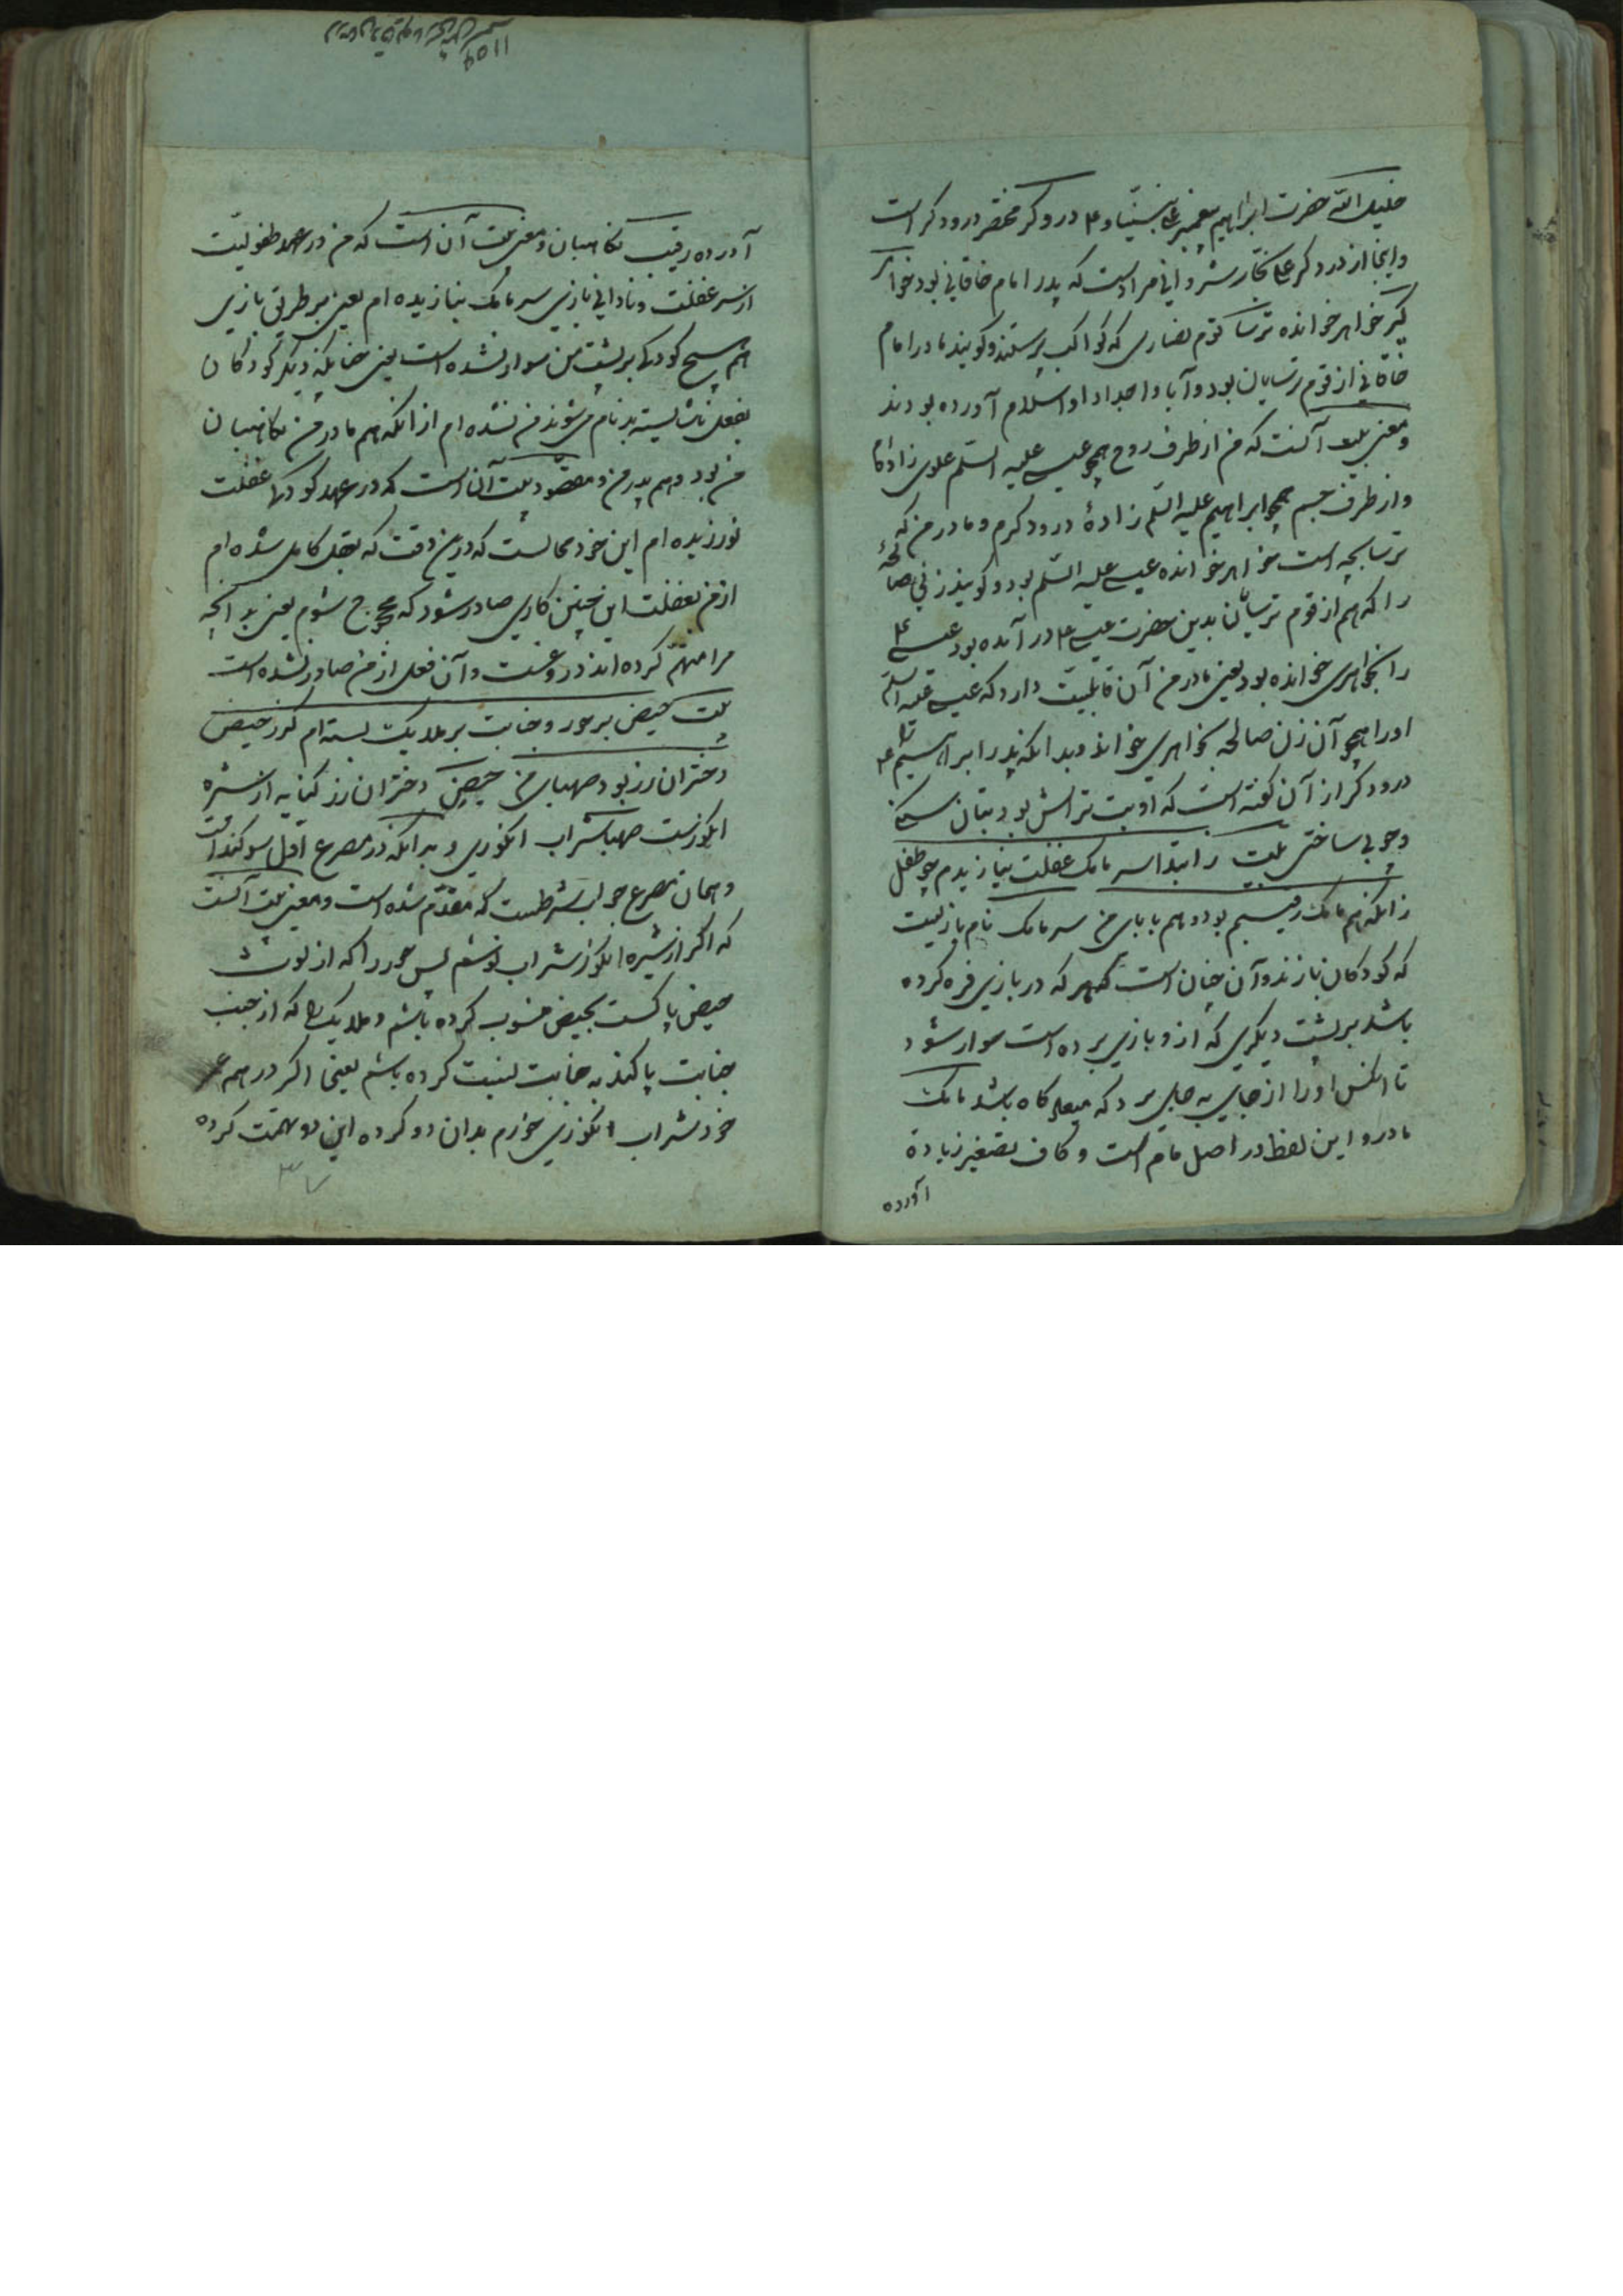 خلیل الله حضرت ابراهیم پیغمبر علی نبینا و ع م دروکر مختصر درودکر است
واینجا از درودکر علی نجار شروانی مراد است که پدر امام خاقانی بود خواهر
گیر خواهر خوانده ترسا قوم نصاری که کواکب پرستند و کویند مادر امام
خاقانی از قوم ترسایان بود و آبا و اجداد او اسلام آورده بودند
و معنی بیت آنست که من از طرف روح همچو عیسی علیه السلم علوی زاده ام
و از طرف جسم همچو ابراهیم علیه السلم زادهٔ درودکرم و مادر من که
ترسابچه است خواهر خوانده عیسی علیه السلم بود و کویند زنی صالحه
را که هم از قوم ترسایان بدین حضرت عیسی ع م در آمده بود عیسی ع م
را بخواهری خوانده بود یعنی مادر من آن قابلیت دارد که عیسی علیه السلم
او را همچو آن زن صالحه بخواهری خواند و بدانکه پدر ابراهیم ع م را
درودکر از آن کفته است که او بت تراش بود بتان سنکی
و چوبی ساختی بیت ز ابتدا سر مامک غفلت نبازیدم چو طفل
زانکه هم مامک رقیبم بود و هم بابای من سر مامک نام بازیست
که کودکان بازند و آن چنان است که هر که در بازی فره کرده
باشد بر پشت دیکری که ازو بازی برده است سوار شود
تا آنکس او را از جایی به جایی برد که میعادگاه باشد مامک
مادر و این لفظ در اصل مام است و کاف تصغیر زیادة
آورده
آورده رقیب نکاهبان و معنی بیت آن است که من در عهد طفولیت
از سر غفلت و نادانی بازی سر مامک نبازیده ام یعنی بر طریق بازی
هم هیچ کودکی بر پشت من سوار نشده است یعنی چنانکه دیکر کودکان
بفعل ناشایسته بدنام می شوند من نشده ام از آنکه هم مادر من نکاهبان
من بود و هم پدر من و مقصود بیت آن است که در عهد کودکی غفلت
نورزیده ام این خود محالست که درین وقت که بعقل کامل شده ام
از من بغفلت این چنین کاری صادر شود که محجوج شوم یعنی بدانچه
مرا متهم کرده اند دروغست و آن فعل از من صادر نشده است
بیت حیض بر حور و جنابت بر ملایک بسته ام کز حیض
دختران رز بود صهبای من حیض دختران رز کنایه از شیره
انکورست صهبا شراب انکوری و بدانکه در مصرع اول سوکند است
و همان مصرع جواب شرطست که مقدم شده است و معنی بیت آنست
که اکر از شیره انکور شراب نوشم پس حور را که از لوث
حیض پاکست بحیض منسوب کرده باشم و ملایک را که از جیب
جنابت پاکند به جنابت نسبت کرده باشم یعنی اکر در همه عمر
خود شراب انکوری خورم بدان دو کرده این دو تهمت کرده